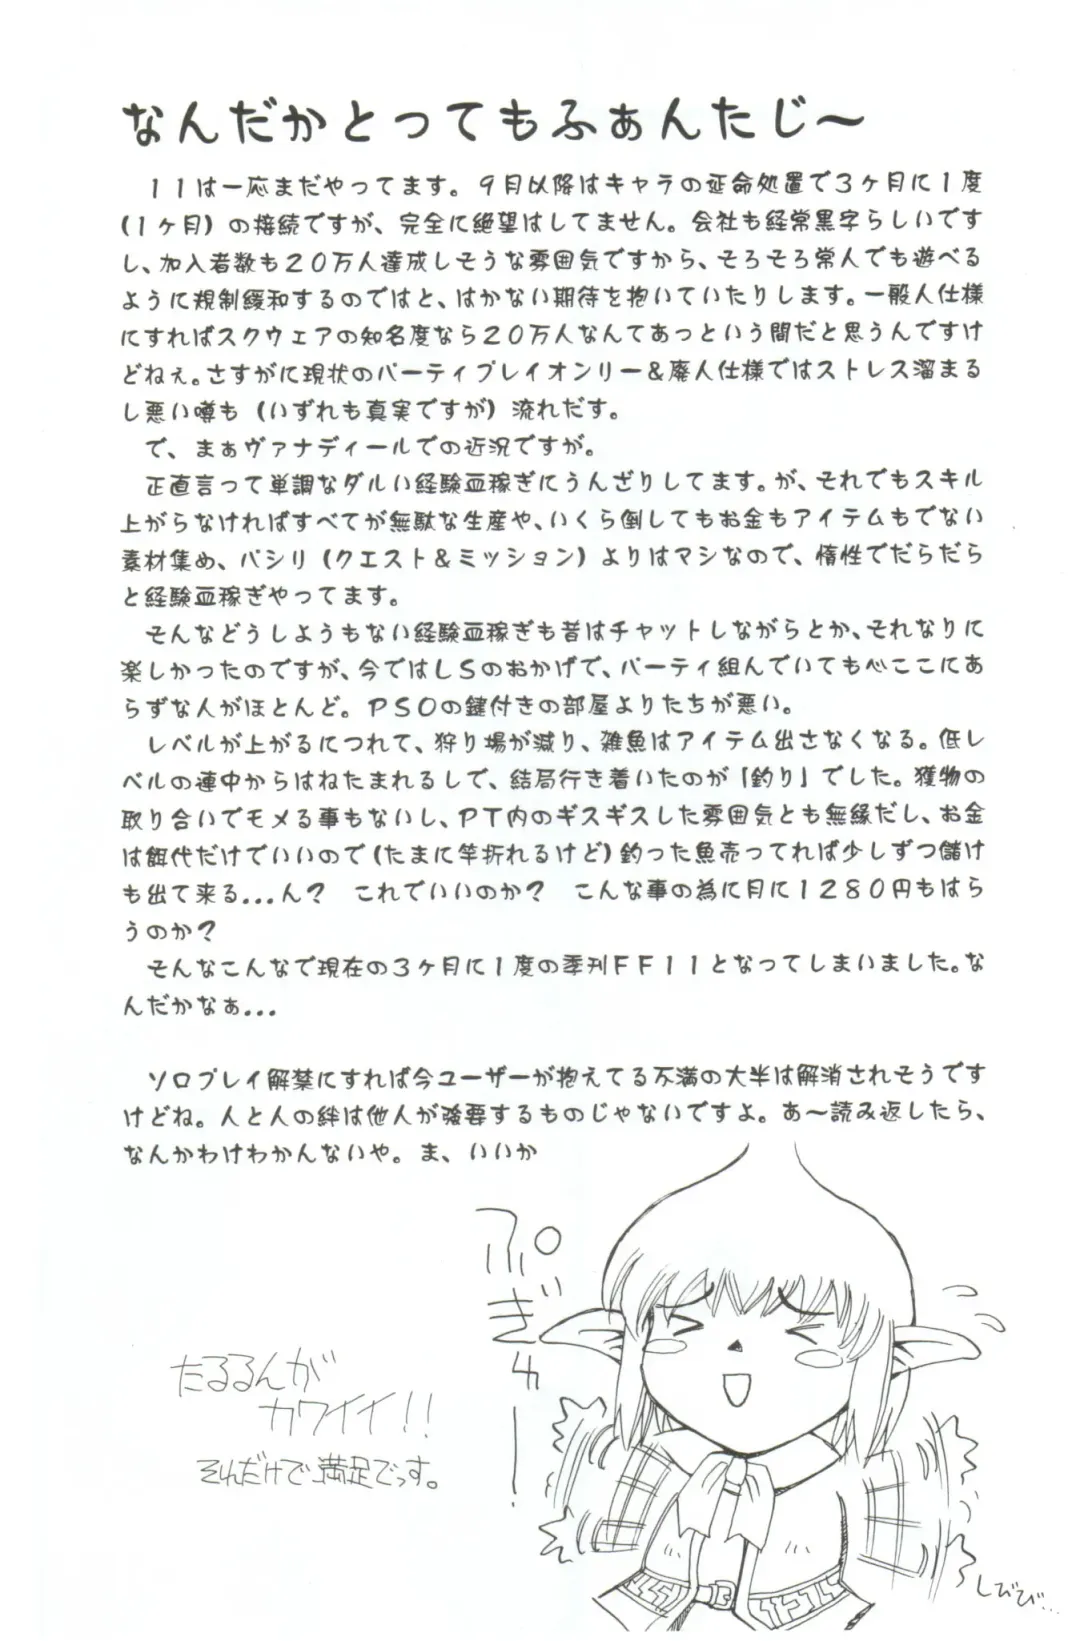 なんだかとってもふぁんたじ〜
１１は一応まだやってます。９月以降はキャラの延命処置で３ヶ月に１度
(１ヶ月）の接続ですが、完全に絶望はしてません。会社も経常黒字らしいです
し、加入者数も２０万人達成しそうな雰囲気ですから、そろそろ常人でも遊べる
ように規制緩和するのではと、はかない期待を抱いていたりします。一般人仕様
にすればスクウェアの知名度なら２０万人なんてあっという間だと思うんですけ
どねぇ。さすがに現状のパーティプレイオンリー＆廃人仕様ではストレス溜まる
し悪い噂も（いずれも真実ですが）流れだす。
で、まぁヴァナディールでの近況ですが。
正直言って単調なダルい経験皿稼ぎにうんざりしてます。が、それでもスキル
上がらなければすべてが無駄な生産や、いくら倒してもお金もアイテムもでない
素材集め、パシリ（クエスト＆ミッション）よりはマシなので、惰性でだらだら
と経験皿稼ぎやってます。
そんなどうしようもない経験皿稼ぎも昔はチャットしながらとか、それなりに
楽しかったのですが、今ではＬＳのおかげで、パーティ組んでいても心ここにあ
らずな人がほとんど。ＰＳＯの鍵付きの部屋よりたちが悪い。
レベルが上がるにつれて、狩り場が減り、雑魚はアイテム出さなくなる。低レ
ベルの連中からはねたまれるしで、結局行き着いたのが「釣り」でした。獲物の
取り合いでモメる事もないし、ＰＴ内のギスギスした雰囲気とも無縁だし、お金
は餌代だけでいいので(たまに竿折れるけど)釣った魚売ってれば少しずつ儲け
も出て来る...ん？　これでいいのか？　こんな事の為に月に１２８０円もはら
うのか？
そんなこんなで現在の３ヶ月に１度の季刊ＦＦ１１となってしまいました。な
んだかなぁ...
ソロプレイ解禁にすれば今ユーザーが抱えてる不満の大半は解消されそうです
けどね。人と人の絆は他人が強要するものじゃないですよ。あ〜読み返したら、
なんかわけわかんないや。ま、いいか
ぷぎゅー！
たるるんが
カワイイ！！
それだけで満足でっす。
しびび…